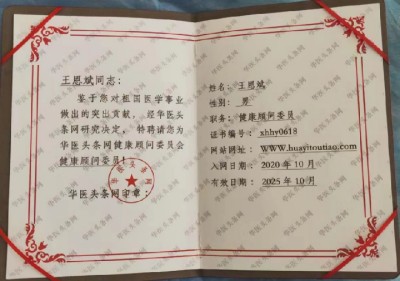 王恩斌同志:
鉴于您对祖国医学事业
做出的突出贡献, 经华医头
条网研究决定, 特聘请您为
华医头条网健康顾问委员会
健康顾问委员!
华医头条网印章:
华医头条网
姓名: 王恩斌
性别: 男
职务: 健康顾问委员
证书编号: xhhy0618
网站网址: WWW.huayitoutiao.com
入网日期: 2020 年 10 月
有效日期: 2025 年 10 月